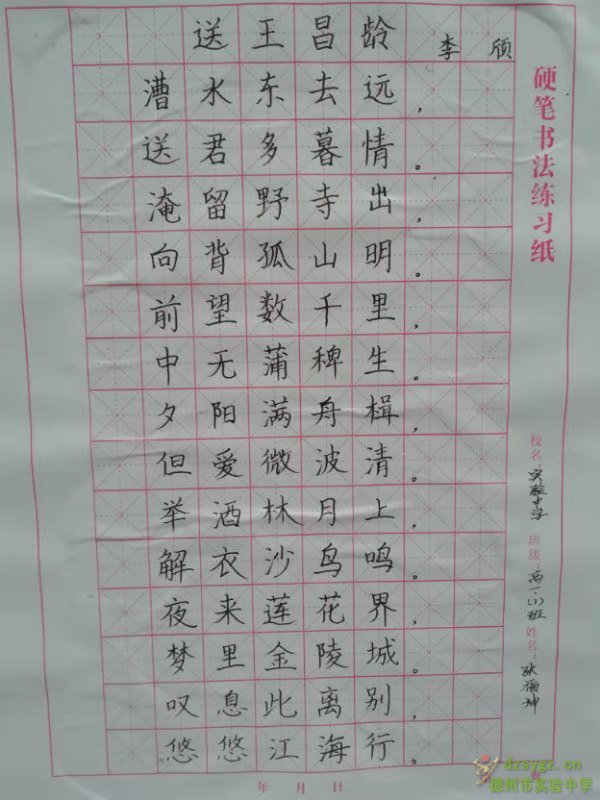 送王昌龄
李颀
漕水东去远，
送君多暮情。
淹留野寺出，
向背孤山明。
前望数千里，
中无蒲稗生。
夕阳满舟楫，
但爱微波清。
举酒林月上，
解衣沙鸟鸣。
夜来莲花界，
梦里金陵城。
叹息此离别，
悠悠江海行。
硬笔书法练习纸
校名：实验中学 班级：高一·(1)班 姓名：张福坤
年 月 日
dzsygz.cn
德州市实验中学